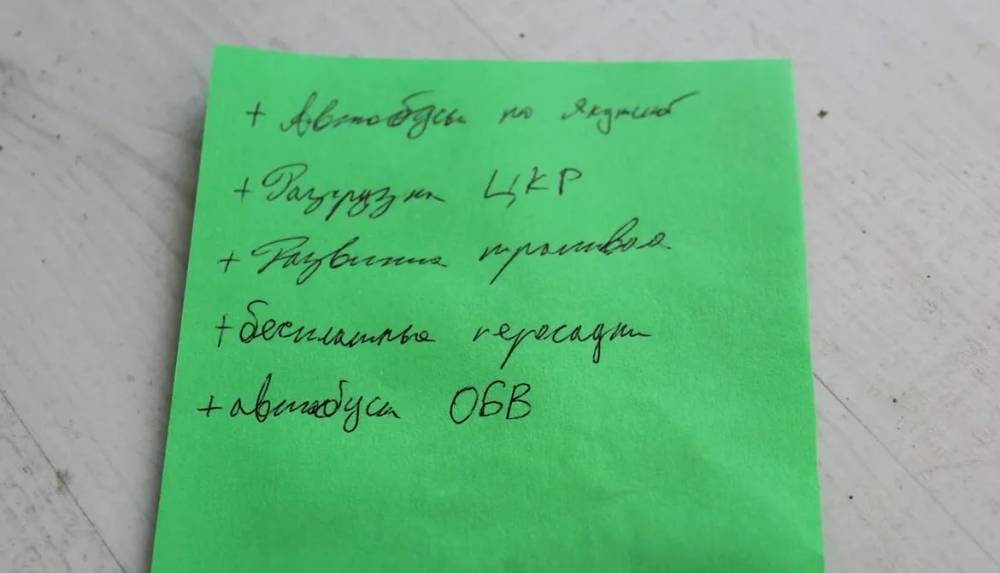 + Автобусы по
+ Разгрузка ЦКР
+ Развитие трамвая
+ бесплатные пересадки
+ автобусы ОБВ